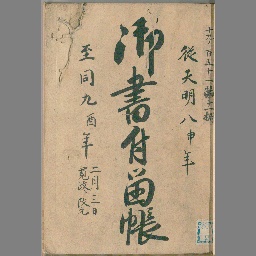 従天明八申年
御書付留帳
至同九酉年
二月三日
寛政改元